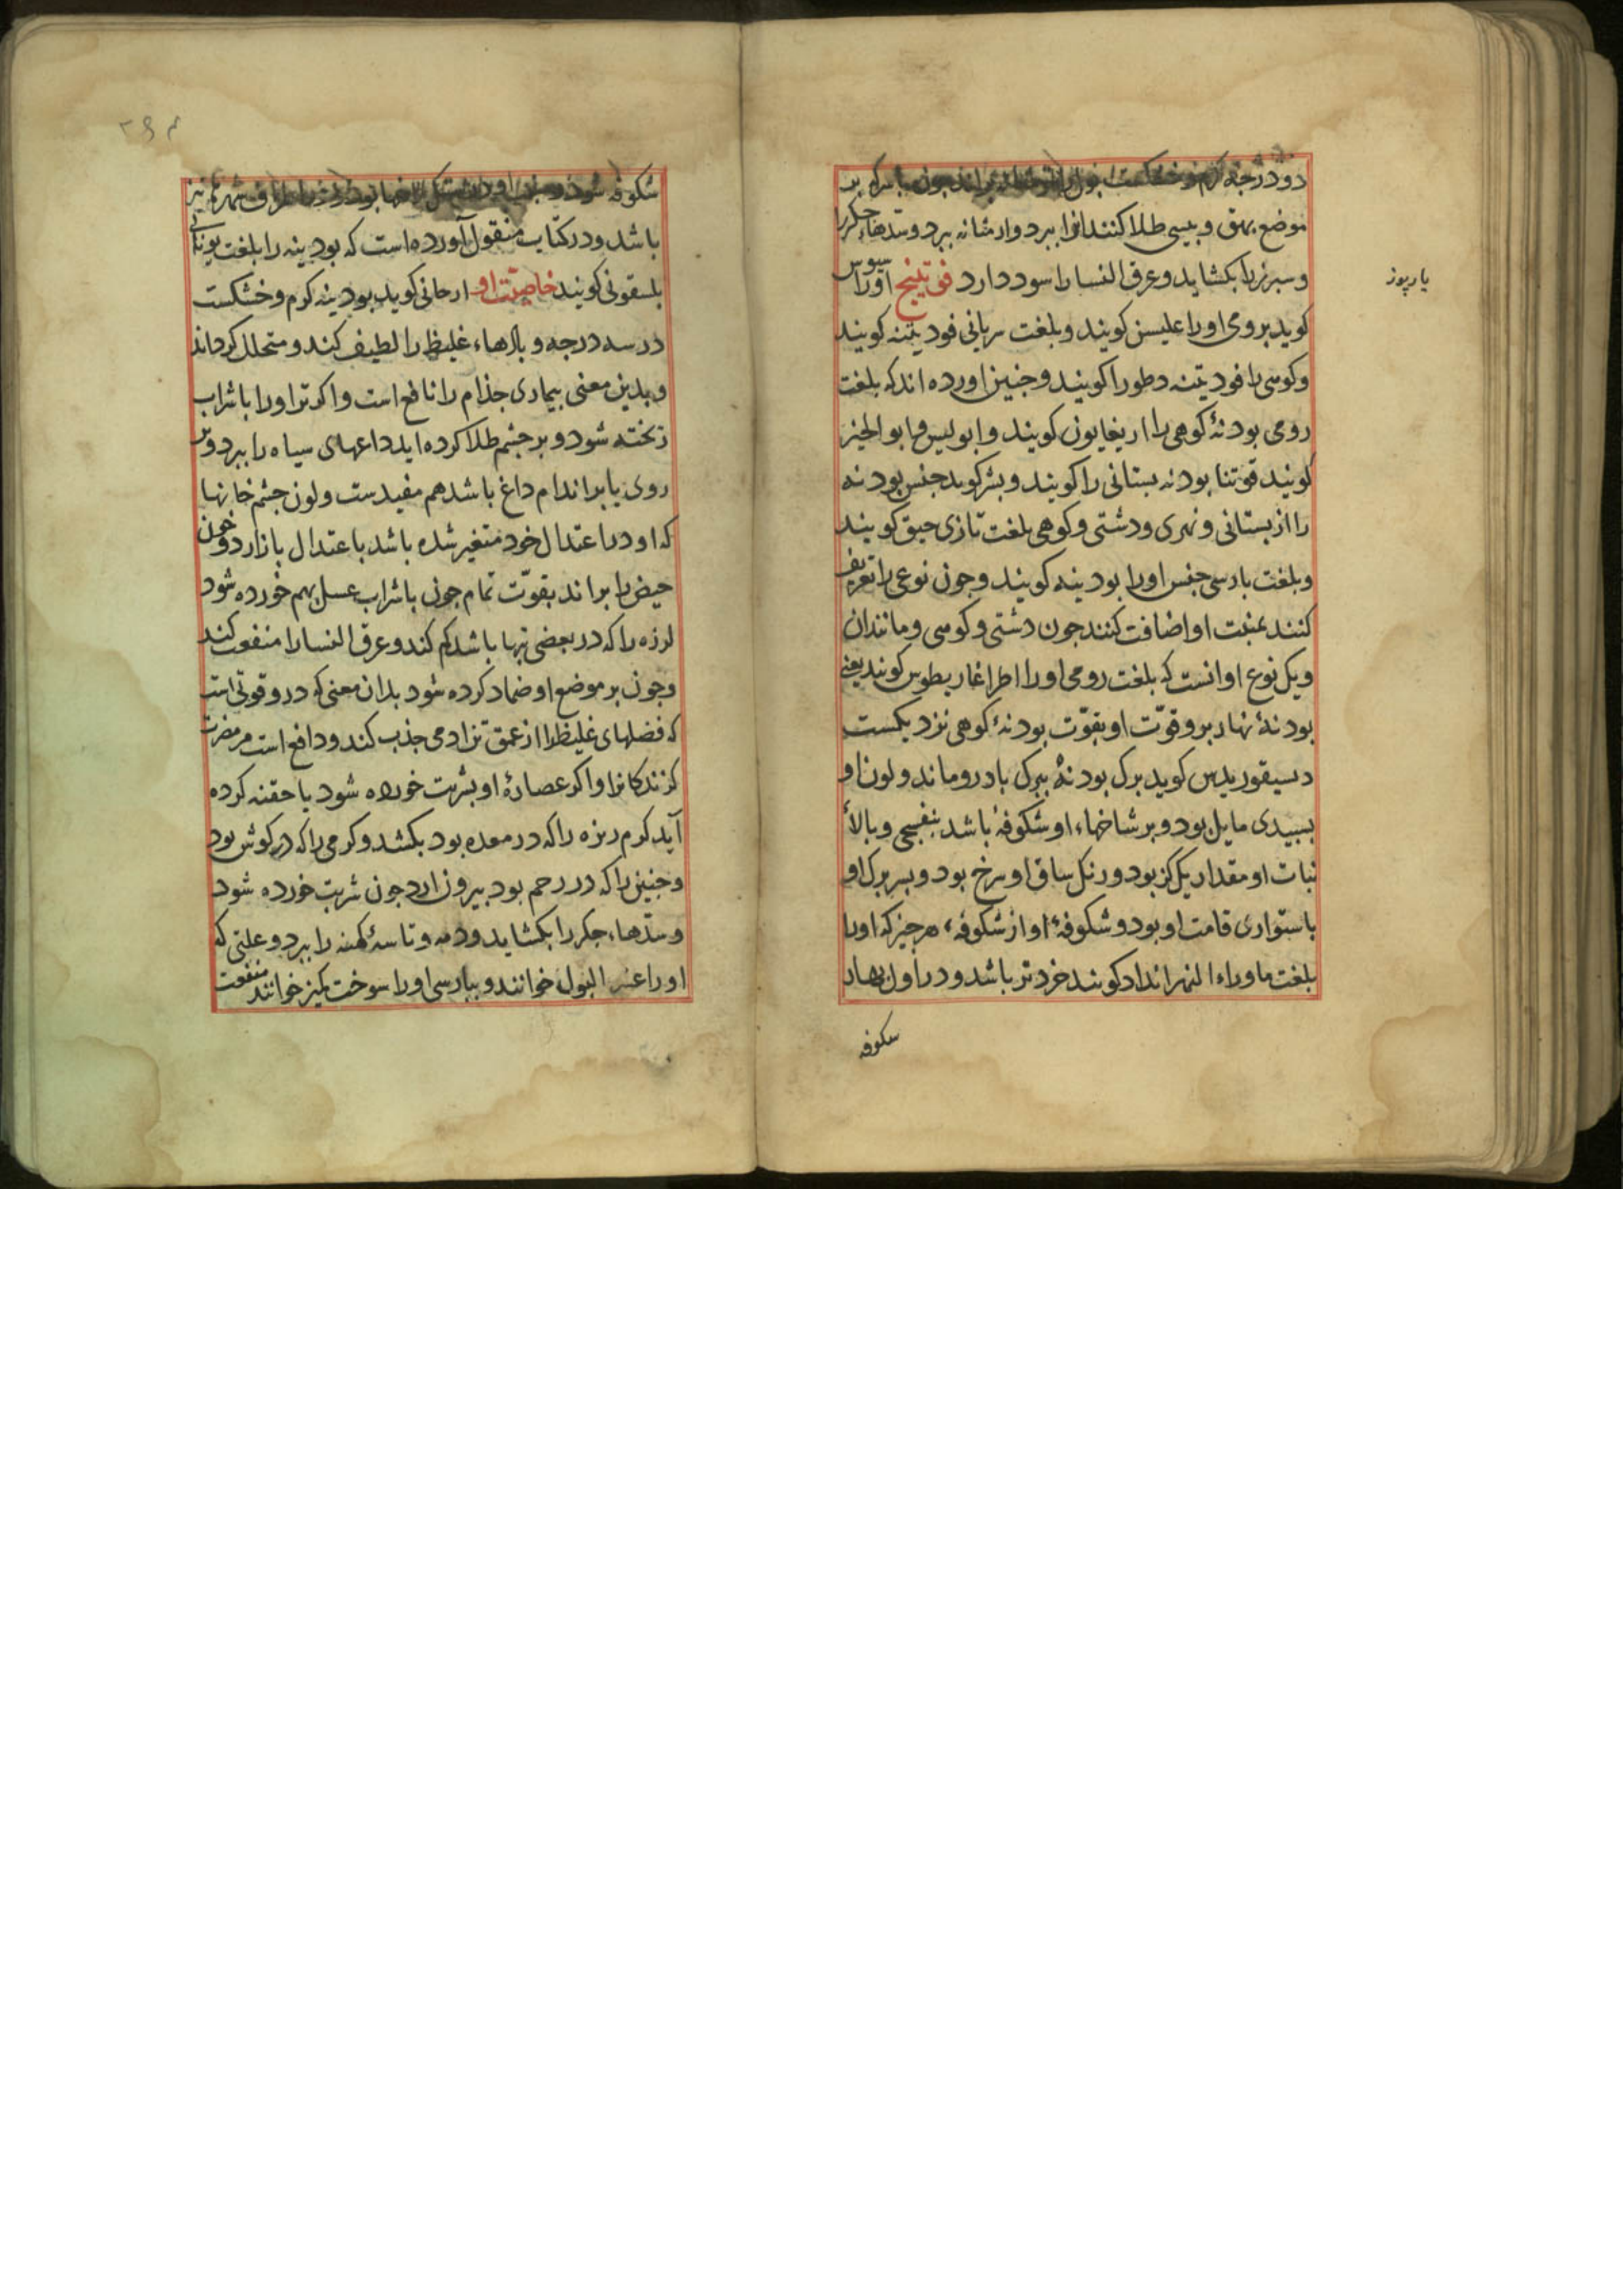 دو درجه کرم و خشکست بول را براند جون با سرکه بر
موضع بهق و بیسی طلا کنند انرا ببرد وارد مثانه ببرد و سدّهاء جکر را
و سبرز را بکشاید و عرق النسا را سود دارد فوتینج اورا سوس
یارپوز
کوید برومی اورا علیسن کویند و بلغت سریانی فودیتنه کویند
و کوسی را فودیتنه دطورا کویند و جنین اورده اند که بلغت
رومی بودنهٔ کوهی را اریغایون کویند و ابولیس و ابو الخیر
کویند قوتنا بودنه بستانی را کویند و بشر کوید جنس بودنه
را از بستانی و نهری و دشتی و کوهی بلغت تازی حبق کویند
و بلغت بارسی جنس اورا بودینه کویند و جون نوعی را تعریف
کنند بمنبت او اضافت کنند جون دشتی و کوسی و مانند ان
و یک نوع او انست که بلغت رومی اورا اطراغاریطوس کویند یعنی
بودنهٔ نهار برو قوّت او بقوّت بودنهٔ کوهی نزدیکست
دیسیقوریدس کوید برک بودنهٔ ببرک بادرو ماند و لون او
بسبیدی مایل بود و بر شاخهاء او شکوفه باشد بنفسجی و بالاء
نبات او مقدار یک کز بود و رنک ساق او سرخ بود و بسر برک او
باستواری قامت او بود و شکوفهٔ او از شکوفهٔ هر جیز که اورا
بلغت ماوراء النهر انداد کویند خردتر باشد و در اول بهار
سکوفه
شکوفه شود و منبت او بیشتر لب جویها بود و در اطراف شمرها نیز
باشد و در کتاب منقول آورده است که بودینه را بلغت یونانی
بلسقونی کویند خاصیّت او ارجانی کوید بودینه کرم و خشکست
در سه درجه و بادهاء غلیظ را لطیف کند و متحلل کرداند
و بدین معنی بیماری جذام را نافع است و اکر تر اورا با شراب
بخته شود و بر جشم طلا کرده اید داغهای سیاه را ببرد و بر
روی یا بر اندام داغ باشد هم مفیدست و لون جشم خانها
که او در اعتدال خود متغیر شده باشد باعتدال باز ارد و خون
حیض را براند بقوّت تمام جون با شراب عسل بهم خورده شود
لرزه را که در بعضی تبها باشد کم کند و عرق النسا را منفعت کند
و جون بر موضع او ضماد کرده شود بدان معنی که درو قوتی است
که فضلهای غلیظ را از عمق تن ادمی جذب کند و دافع است مر مضرت
کزندکانرا و اکر عصارهٔ او بشربت خورده شود یا حقنه کرده
آید کرم ریزه را که در معده بود بکشد و کرمی را که در کوش بود
و جنین را که در رحم بود بیرون ارد جون شربت خورده شود
و سدّهاء جکر را بکشاید و دمه و تاسهٔ کهنه را ببرد و علتی که
اورا عسر البول خوانند و ببارسی اورا سوخت کمیز خوانند منفعت